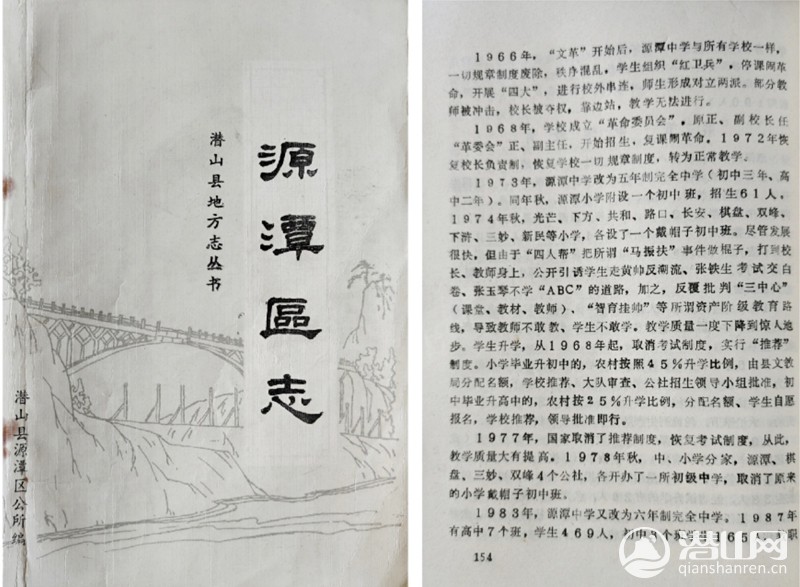 潜山县地方志丛书
源潭區志
潜山县源潭区公所编
1966年，“文革”开始后，源潭中学与所有学校一样，
一切规章制度废除，秩序混乱，学生组织“红卫兵”，停课闹革
命，开展“四大”，进行校外串连，师生形成对立两派。部分教
师被冲击，校长被夺权，靠边站，教学无法进行。
1968年，学校成立“革命委员会”。原正、副校长任
“革委会”正、副主任，开始招生，复课闹革命。1972年恢
复校长负责制，恢复学校一切规章制度，转为正常教学。
1973年，源潭中学改为五年制完全中学（初中三年、高
中二年）。同年秋，源潭小学附设一个初中班，招生61人。
1974年秋，光芒、下方、共和、路口、长安、棋盘、双峰、
下浒、三妙、新民等小学，各设了一个戴帽子初中班。尽管发展
很快，但由于“四人帮”把所谓“马振扶”事件做棍子，打到校
长、教师身上，公开引诱学生走黄帅反潮流、张铁生考试交白
卷、张玉琴不学“ABC”的道路，加之，反覆批判“三中心”
（课堂、教材、教师）、“智育挂帅”等所谓资产阶级教育路
线，导致教师不敢教、学生不敢学。教学质量一度下降到惊人地
步。学生升学，从1968年起，取消考试制度，实行“推荐”
制度。小学毕业升初中的，农村按照45%升学比例，由县文教
局分配名额，学校推荐、大队审查、公社招生领导小组批准，初
中毕业升高中的，农村按25%升学比例，分配名额、学生自愿
报名，学校推荐，领导批准即行。
1977年，国家取消了推荐制度，恢复考试制度，从此，
教学质量大有提高。1978年秋，中、小学分家，源潭、棋
盘、三妙、双峰4个公社，各开办了一所初级中学，取消了原来
的小学戴帽子初中班。
1983年，源潭中学又改为六年制完全中学。1987年
有高中7个班，学生469人，初中3个班学生165人，教职
154
潜山网
qianshanren.cn